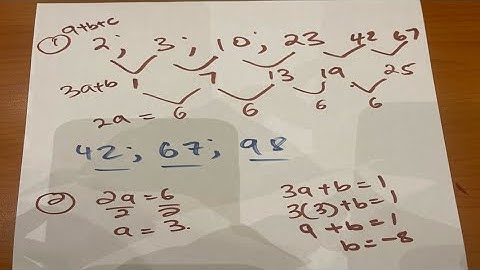 a+b+c
① 2; 3; 10; 23 42 67
3a+b 1 7 13 19 25
2a = 6 6 6 6
42; 67; 98
② 2a = 6
2 2
a = 3.
3a+b=1
3(3)+b=1
9+b=1
b=-8